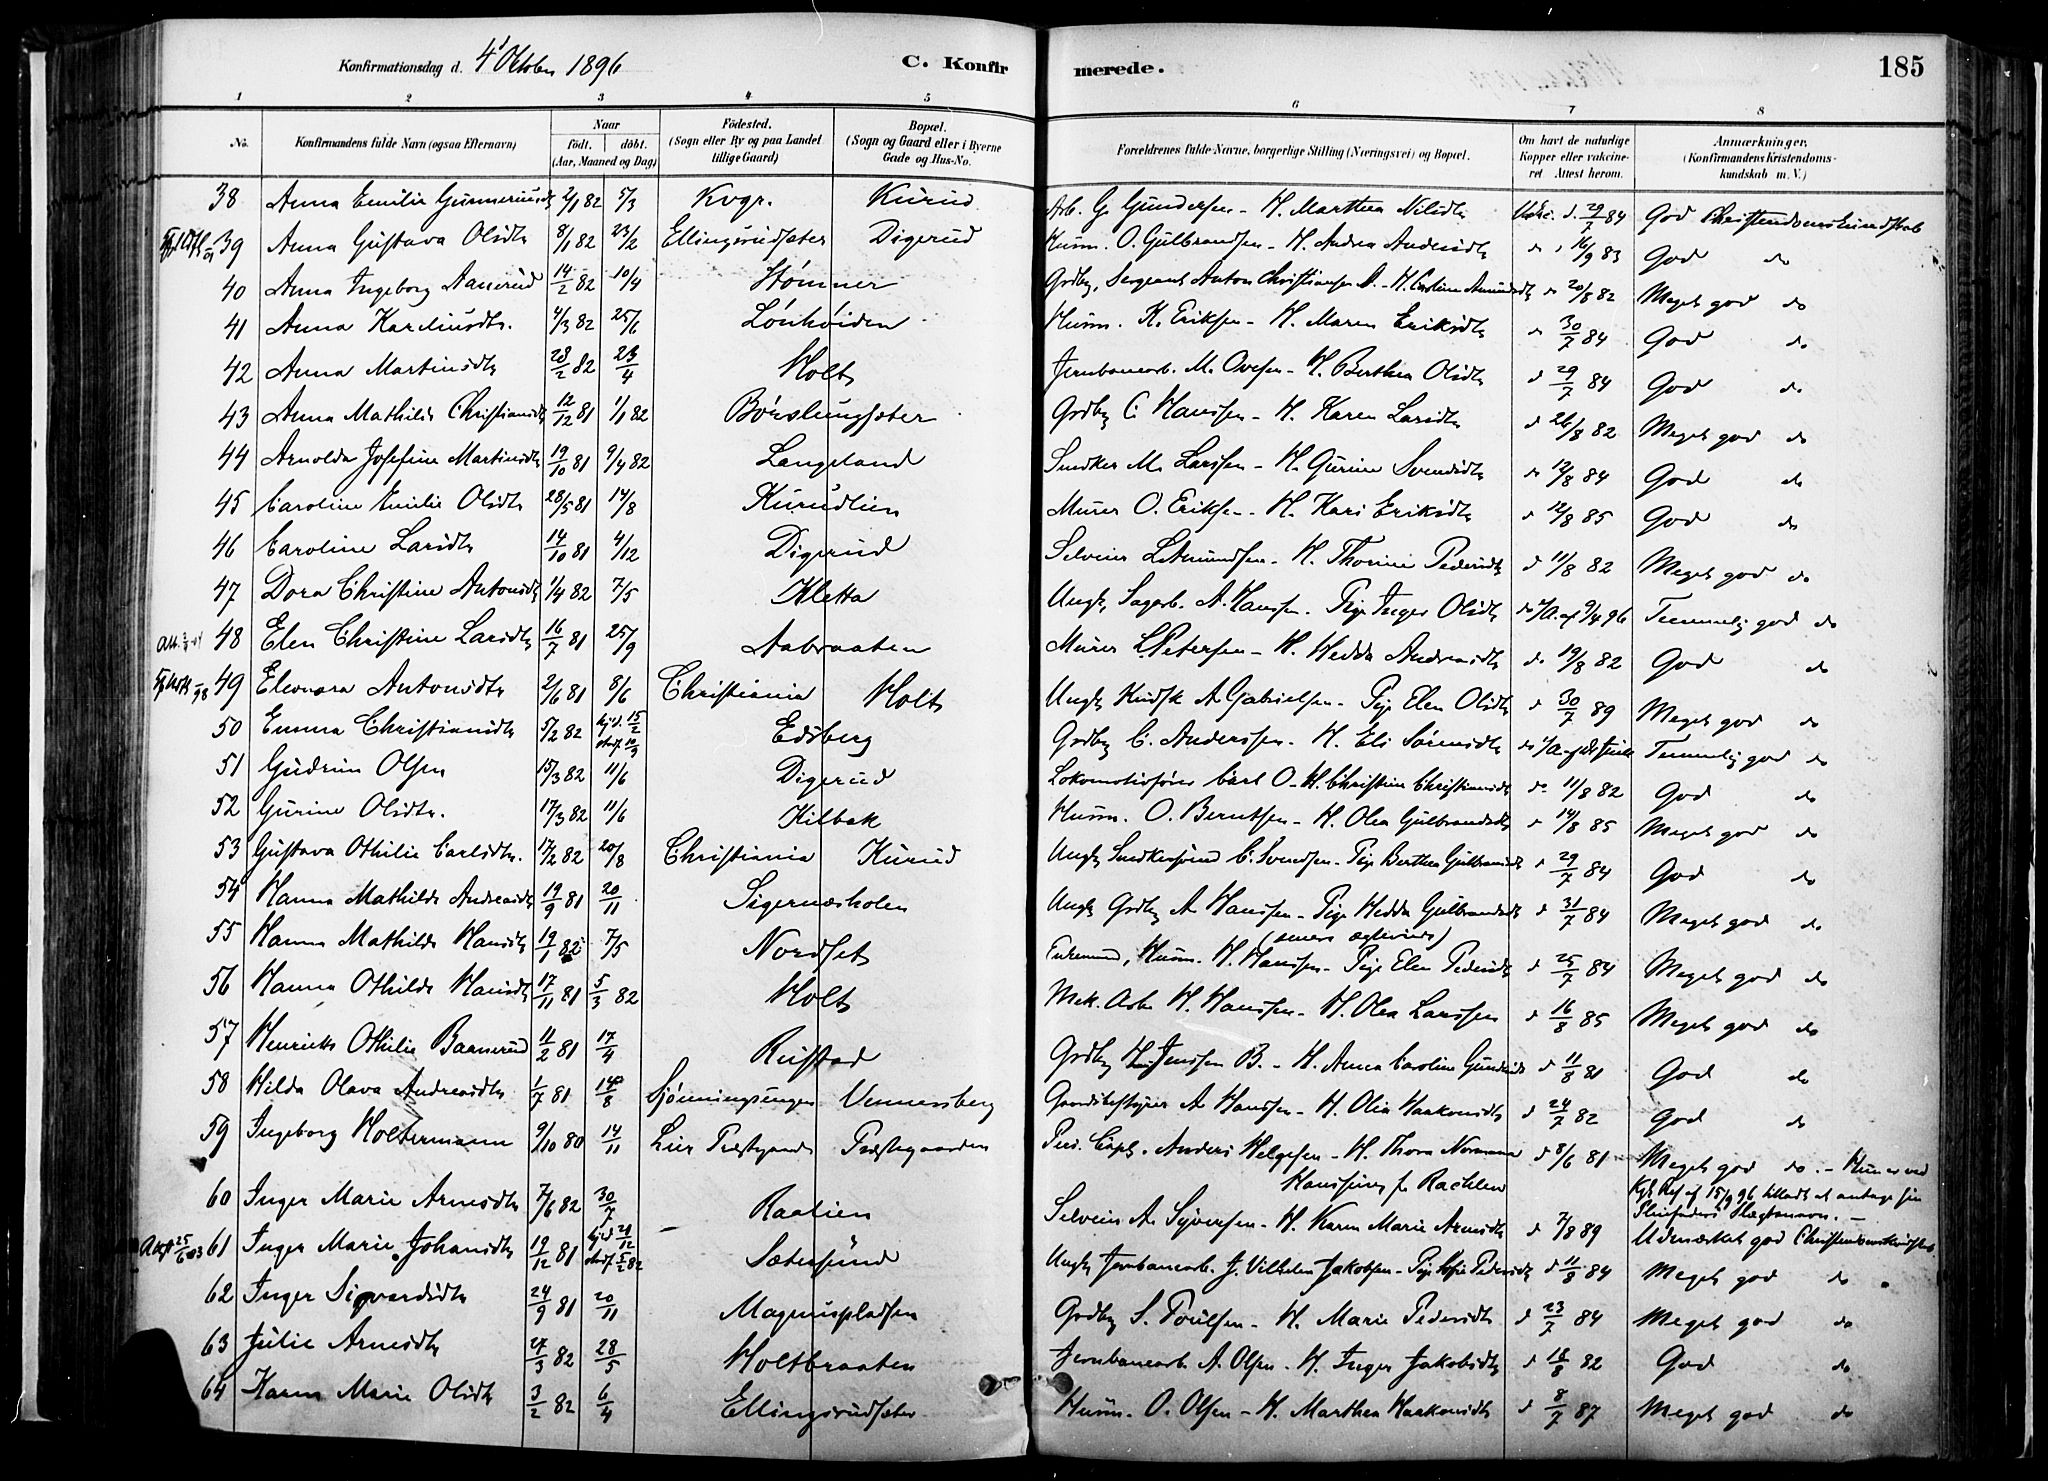 Konfirmationsdag d. 4' Oktober 1896 C. Konfirmerede. 185
1 2 3 4 5 6 7 8
No. Konfirmandens fulde Navn (ogsaa Efternavn) Naar födt. döbt. (Aar, Maaned og Dag) Födested. (Sogn eller By og paa Landet tillige Gaard) Bopæl. (Sogn og Gaard eller i Byerne Gade og Hus-No. Forældrenes fulde Navne, borgerlige Stilling (Næringsvei) og Bopæl. Om havt de naturlige Kopper eller vakcineret Attest herom. Anmærkninger. (Konfirmandens Kristendomskundskab m. V.)
38 Anna Emilie Gunneriusdt 2/1 82 5/3 Kvgr. Kurud Arb. G. Gundersen - H. Marthea Nilsdt Vakc. d. 29/7 84 God Christendomskundskab
39 Anna Gustava Olsdt 8/1 82 23/2 Ellingsrudsæter Digerud Husm. O. Gulbrandsen - H. Andrea Andersdt d 16/9 83 God do
40 Anna Ingeborg Aanerud 14/2 82 10/4 Stømner Grdbr, Sergeant Anton Christiansen A. - H. Caroline Amundsdt d 20/8 82 Meget god do
41 Anna Karliusdtr. 4/3 82 25/6 Lónhóiden Husm. K. Eriksen - H. Maren Eriksdt d 30/7 84 God do
42 Anna Martinsdtr 28/2 82 23/4 Holt Jernbanearb. M. Ovesen - H. Berthea Olsdt d 29/7 84 God do
43 Anna Mathilde Christiansdt 12/12 81 1/1 82 Børslungsæter Grdbr C. Hansen - H. Karen Larsdt d 26/8 82 Meget god do
44 Arnolda Josefine Martinsdt 19/10 81 9/4 82 Langeland Snedker M. Larssen - H. Gurine Svendsdt d 12/8 84 God do
45 Caroline Emilie Olsdt 28/5 81 14/8 Kurudlien Murer O. Eriksen - H. Kari Eriksdt d 12/8 85 God do
46 Caroline Larsdt 14/10 81 4/12 Digerud Selveier L. Amundsen - H. Thorine Pedersdt d 11/8 82 Meget god do
47 Dora Christine Antonsdt 1/4 82 7/5 Kletta Ungk. Sagarb. A. Hansen - Pige Inger Olsdt do 9/4 96 Temmelig god do
48 Elen Christine Larsdt 16/7 81 25/9 Aabraaten Murer L. Petersen - H. Hedda Andreasdt do 19/8 82 God do
49 Eleonora Antonsdt 2/6 81 8/6 Christiania Holt Ungk. Kudsk A. Gabrielsen - Pige Elen Olsdt d 30/7 89 Meget god do
50 Emma Christiansdt 5/2 82 hjd. 15/2 stadf. 10/3 Edsberg Grdbr C. Anderssen - H. Eli Sørensdt Temmelig god do
51 Gudrun Olsen 15/3 82 11/6 Digerud Lokomotivfører Carl O - H. Christine Christiansdt do 11/8 82 God do
52 Gurine Olsdtr. 17/3 82 11/6 Kilbak Husm. O. Berntsen - H. Olea Gulbrandsdt d 14/8 85 Meget god do
53 Gustava Othilie Carlsdtr. 17/2 82 20/8 Christiania Kurud Ungk. Snedkersvend C. Svendsen - Pige Berthea Gulbrandsdt d 29/7 84 God do
54 Hanna Mathilde Andreasdt 19/9 81 20/11 Sigernæsholen Ungk. Grdbr A. Hanssen - Pige Hedda Gulbrandsdt d 31/7 84 Meget god do
(senere ægteviede)
55 Hanna Mathilde Hansdt 19/1 82 7/5 Nordset Enkemand, Husm. H. Hanssen - Pige Elen Pedersdt d 25/7 84 Meget god do
56 Hanna Othilde Hansdt 17/11 81 5/3 82 Holt Mek. Arb. H. Hanssen - H. Olea Larssen d 16/8 85 Meget god do
57 Henriette Othilie Baanerud 11/2 81 17/4 Rustad Grdbr Hans Jenssen B. - H. Anna Caroline Gundersdt d 11/8 81 God do
58 Hilda Olava Andreasdt 1/7 81 14/8 Sjønningsengen Vennersberg Gaardsbestyrer A. Hanssen - H. Olia Haakonsdt d 24/7 82 God do
59 Ingeborg Holtermann 9/10 80 14/11 Lier Præstegaard Præstegaarden Pers. Capl. Anders Helgesen - H. Thora Normann d 8/6 81 Meget god do. - Hun er ved
Kgl. Res. af 15/9 96 tilladt at antage sin Stiffaders Slægtsnavn. -
60 Inger Marie Arnesdt 7/6 82 30/7 Raalien Selveier A. Syversen - H. Karen Marie Arnesdt d 7/8 89 Udmærket god Christendomskundskab
61 Inger Marie Johansdt 19/12 81 hjd 24/12 stadf. 5/2 82 Sætersund Ungk. Jernbanearb. J. Vilhelm Jakobsen - Pige Sofie Pedersdt d 11/8 84 Meget god do
62 Inger Sigvardsdt 24/9 81 20/11 Magnuspladsen Grdbr S. Poulsen - H. Marie Pedersdt d 23/7 84 Meget god do
63 Julie Arnesdt 27/3 82 28/5 Holtbraaten Jernbanearb. A. Olsen - H. Inger Jakobsdt d 18/8 82 God do
64 Karen Marie Olsdt 3/2 82 6/4 Ellingsrudsæter Husm. O. Olsen - H. Marthea Haakonsdt d 8/7 87 Meget god do